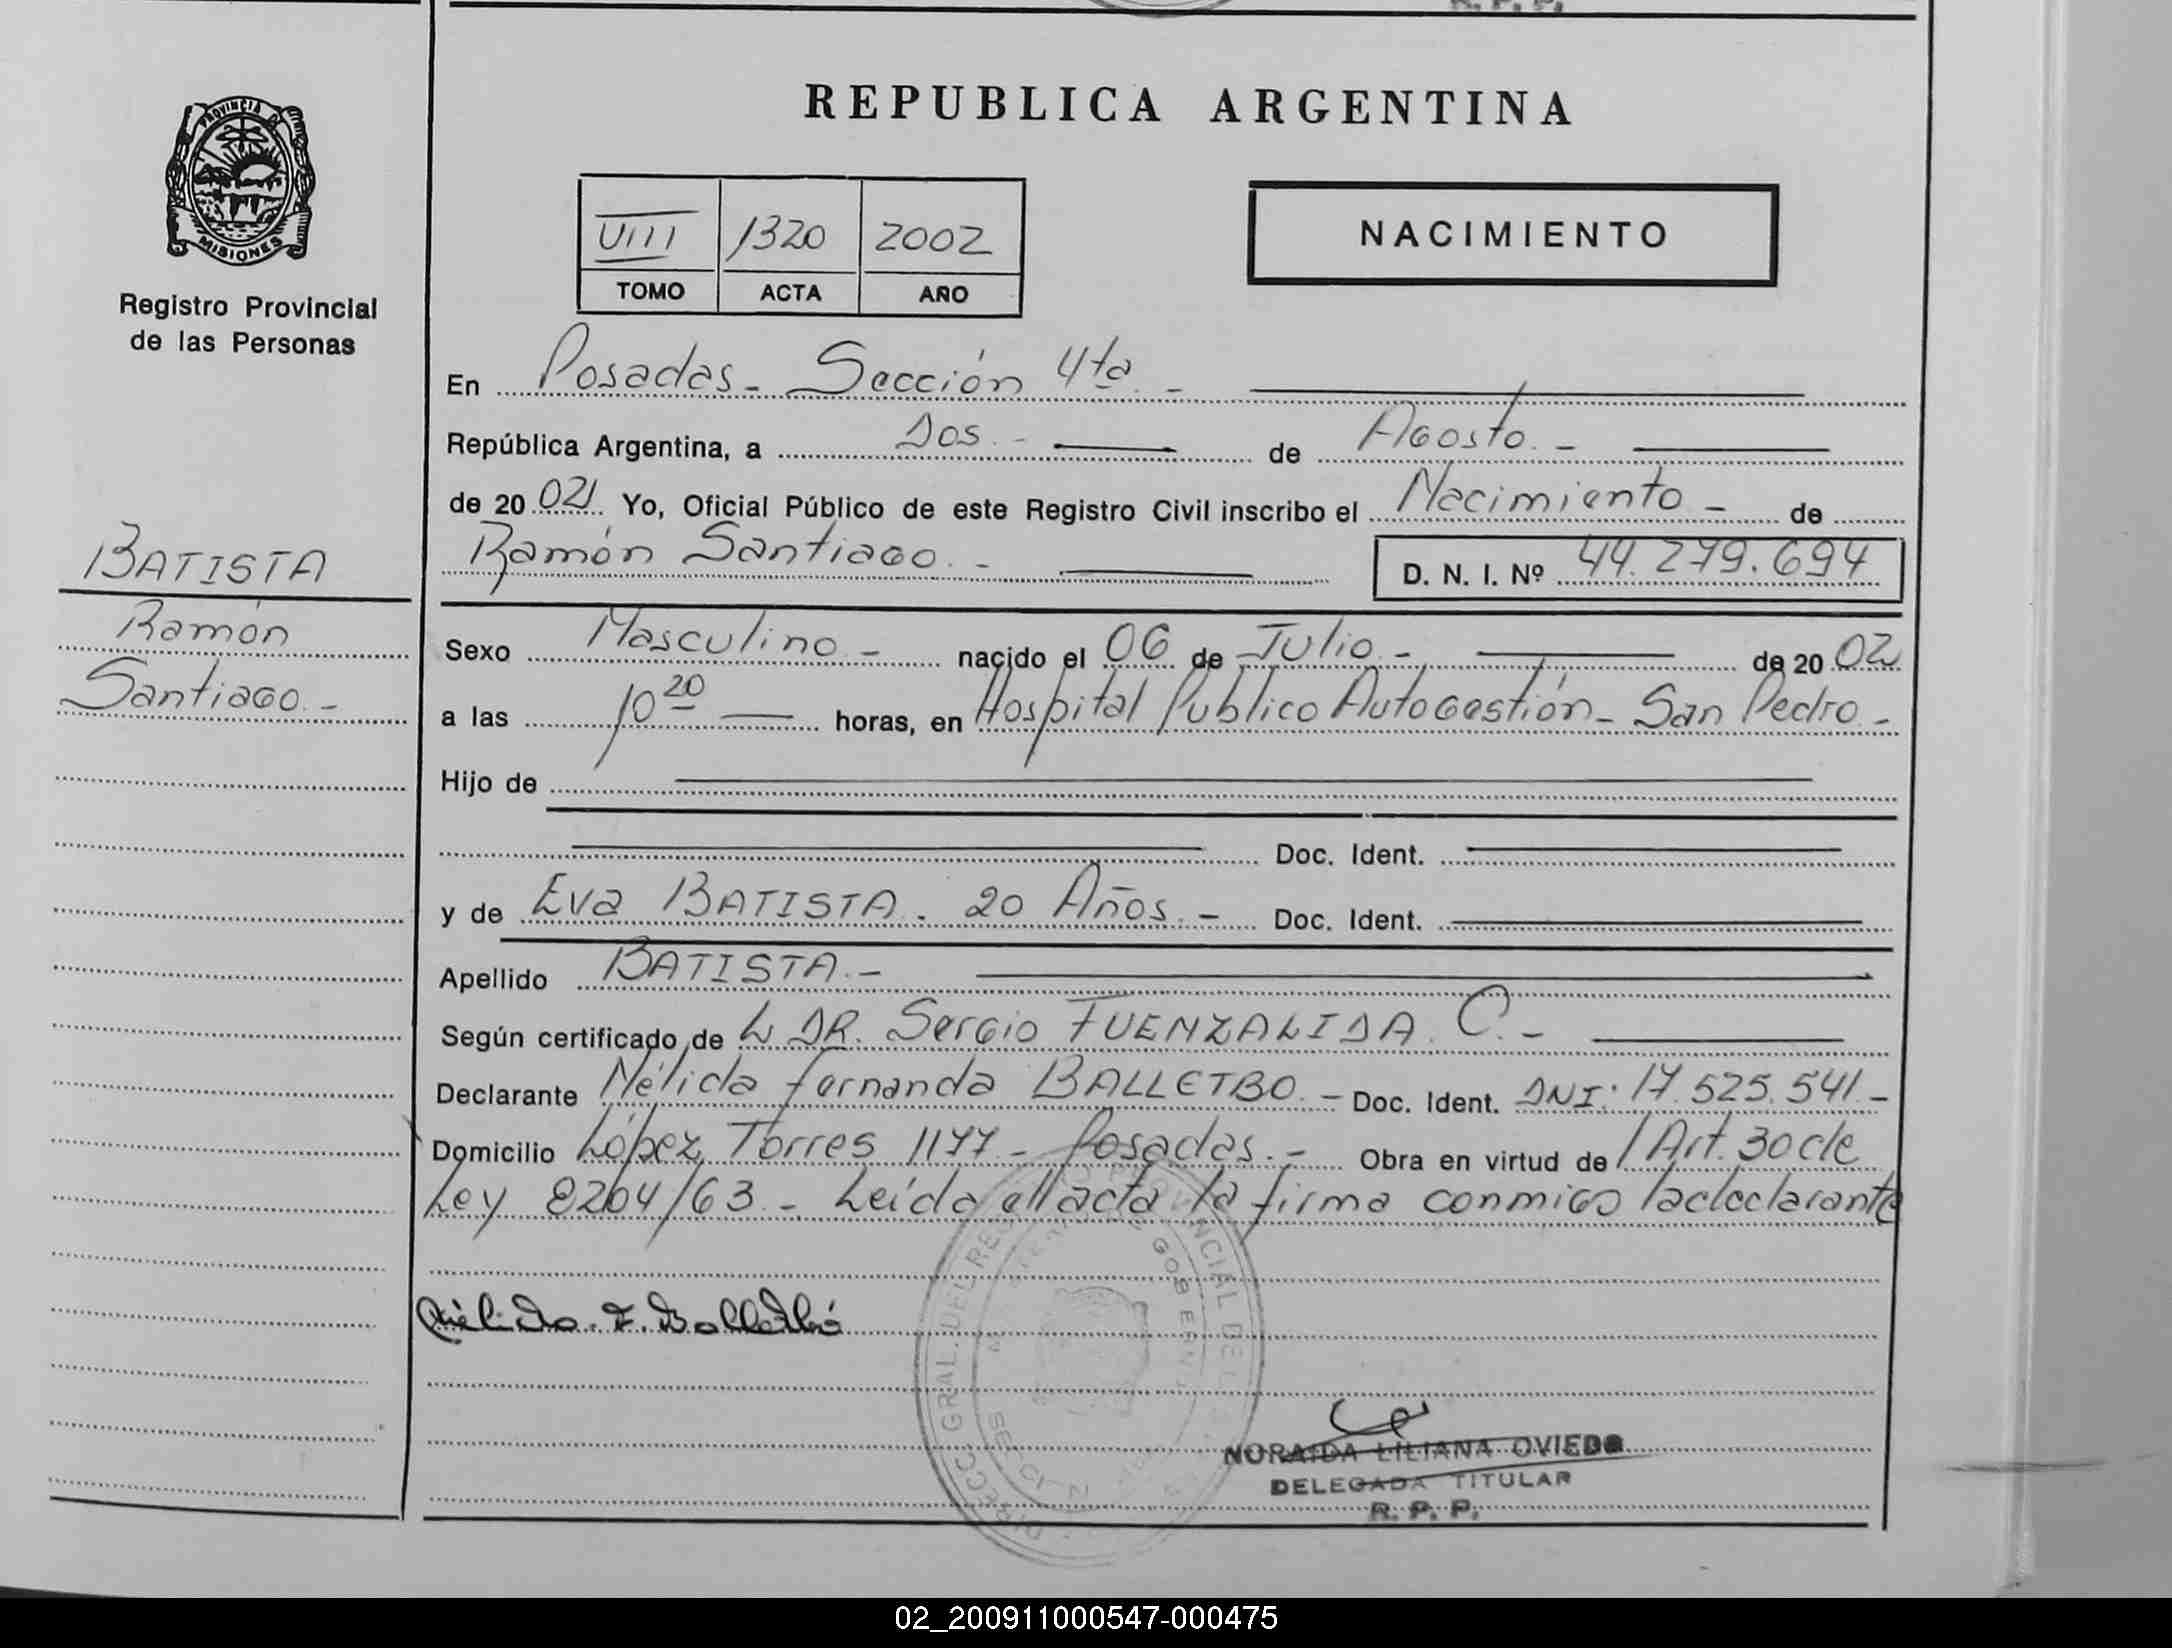 R. P. P.
REPUBLICA ARGENTINA
PROVINCIA DE
MISIONES
Registro Provincial
de las Personas
VIII 1320 2002
TOMO ACTA AÑO
NACIMIENTO
En Posadas - Sección 4ta. -
República Argentina, a Dos. - de Agosto. -
de 20 02 Yo, Oficial Público de este Registro Civil inscribo el Nacimiento - de
Ramón Santiago. - D. N. I. Nº 44.279.694
BATISTA
Ramón
Santiago. -
Sexo Masculino. - nacido el 06 de Julio. - de 20 02
a las 10 20 horas, en Hospital Público Autogestión - San Pedro. -
Hijo de
Doc. Ident.
y de Eva BATISTA. 20 Años. - Doc. Ident.
Apellido BATISTA. -
Según certificado de L DR. Sergio FUENZALIDA. C. -
Declarante Nélida fernanda BALLETBO. - Doc. Ident. DNI: 17.525.541 -
Domicilio López Torres 1177 - Posadas. - Obra en virtud de l Art. 30 de
Ley 8204/63. - Leída el acta la firma conmigo la declarante
Nélida. F. Balletbó
DIRECC. GRAL. DEL REG PROVINCIAL DE
GOBIERN
NORAIDA LILIANA OVIEDO
DELEGADA TITULAR
R. P. P.
02_200911000547-000475